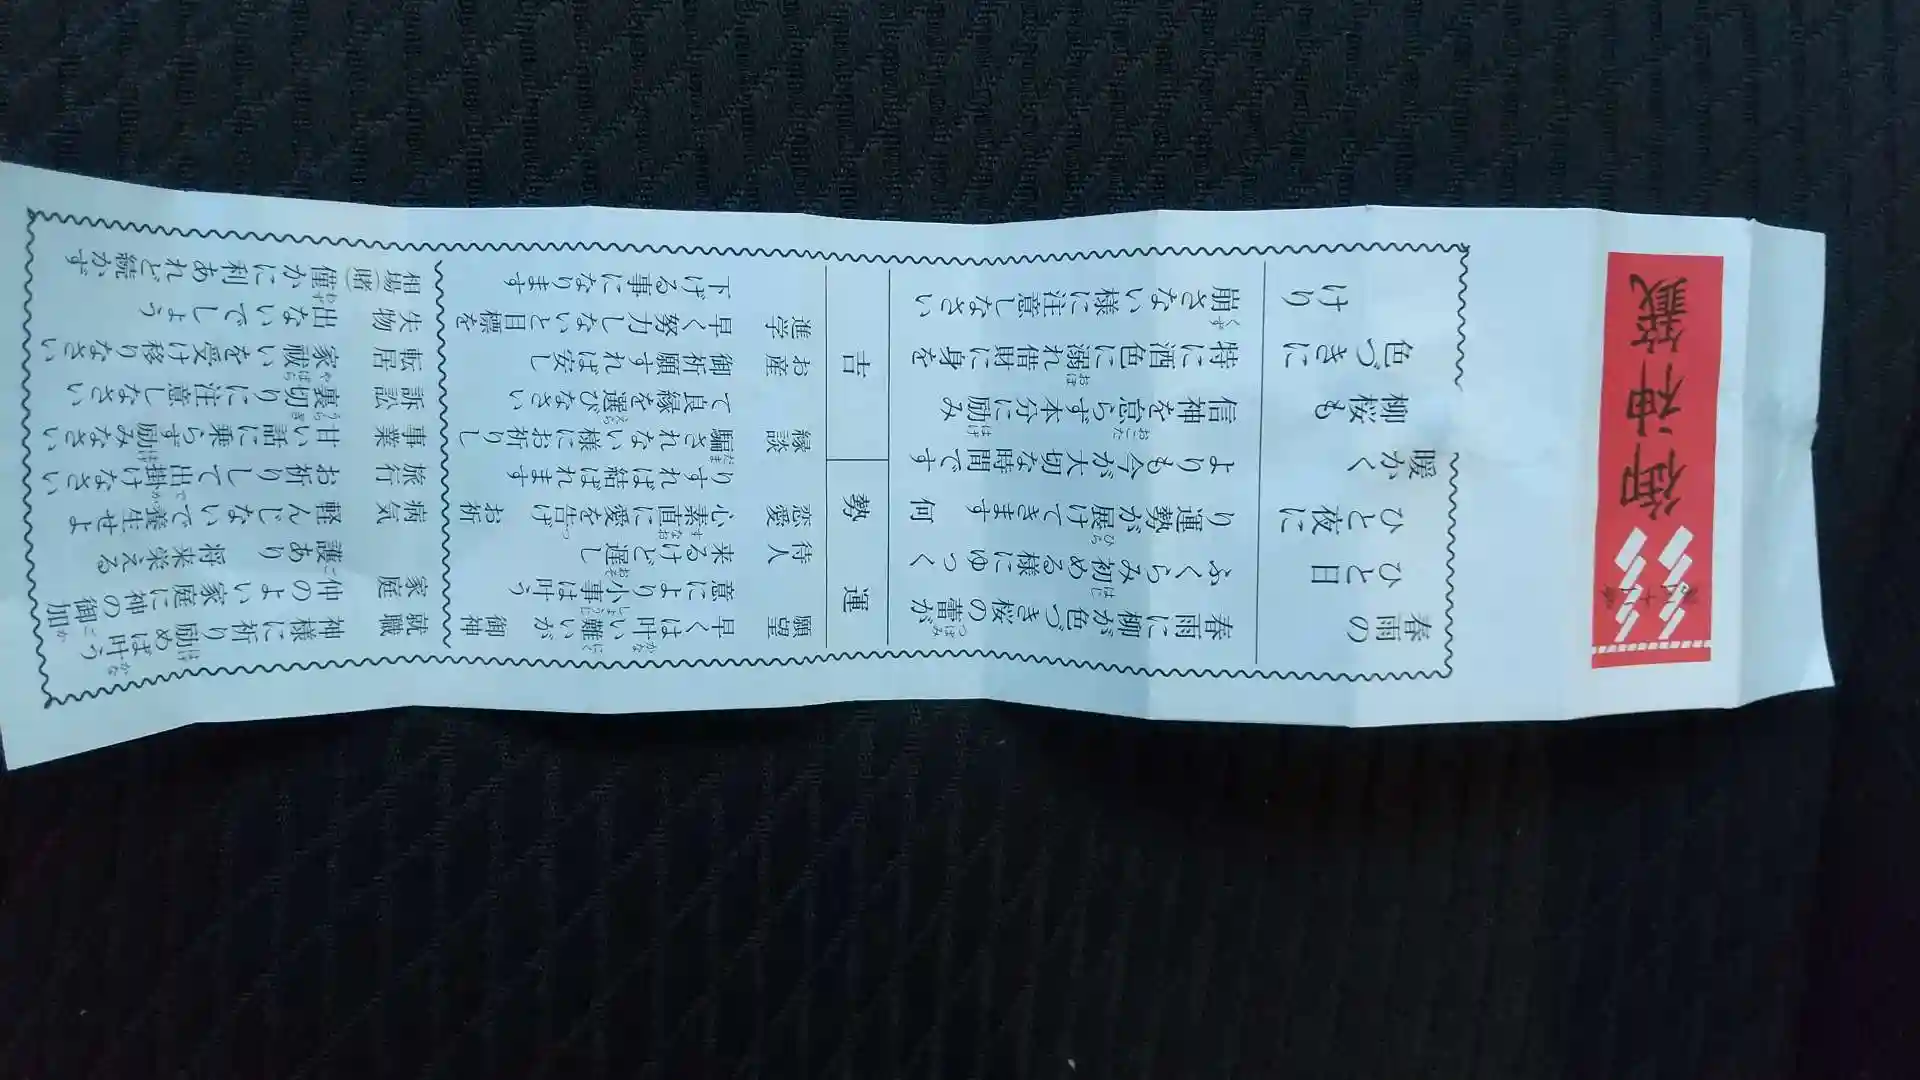 御神籤
春雨の
ひと日
ひと夜に
暖かく
柳桜も
色づきに
けり
春雨に柳が色づき桜の蕾が
ふくらみ初める様にゆっく
り運勢が展けてきます 何
よりも今が大切な時間です
信神を怠らず本分に励み
特に酒色に溺れ借財に身を
崩さない様に注意しなさい
運勢 吉
願望 早くは叶い難いが 御神
意により小事は叶う
待人 来るけど遅し
恋愛 心素直に愛を告げ お祈
りすれば結ばれます
縁談 騙されない様にお祈りし
て良縁を選びなさい
お産 御祈願すれば安し
進学 早く努力しないと目標を
下げる事になります
就職 神様に祈り励めば叶う
家庭 仲のよい家庭に神の御加
護あり 将来栄える
病気 軽んじないで養生せよ
旅行 お祈りして出掛けなさい
事業 甘い話に乗らず励みなさい
訴訟 裏切りに注意しなさい
転居 家祓いを受け移りなさい
失物 出ないでしょう
相場(賭) 僅かに利あれど続かず